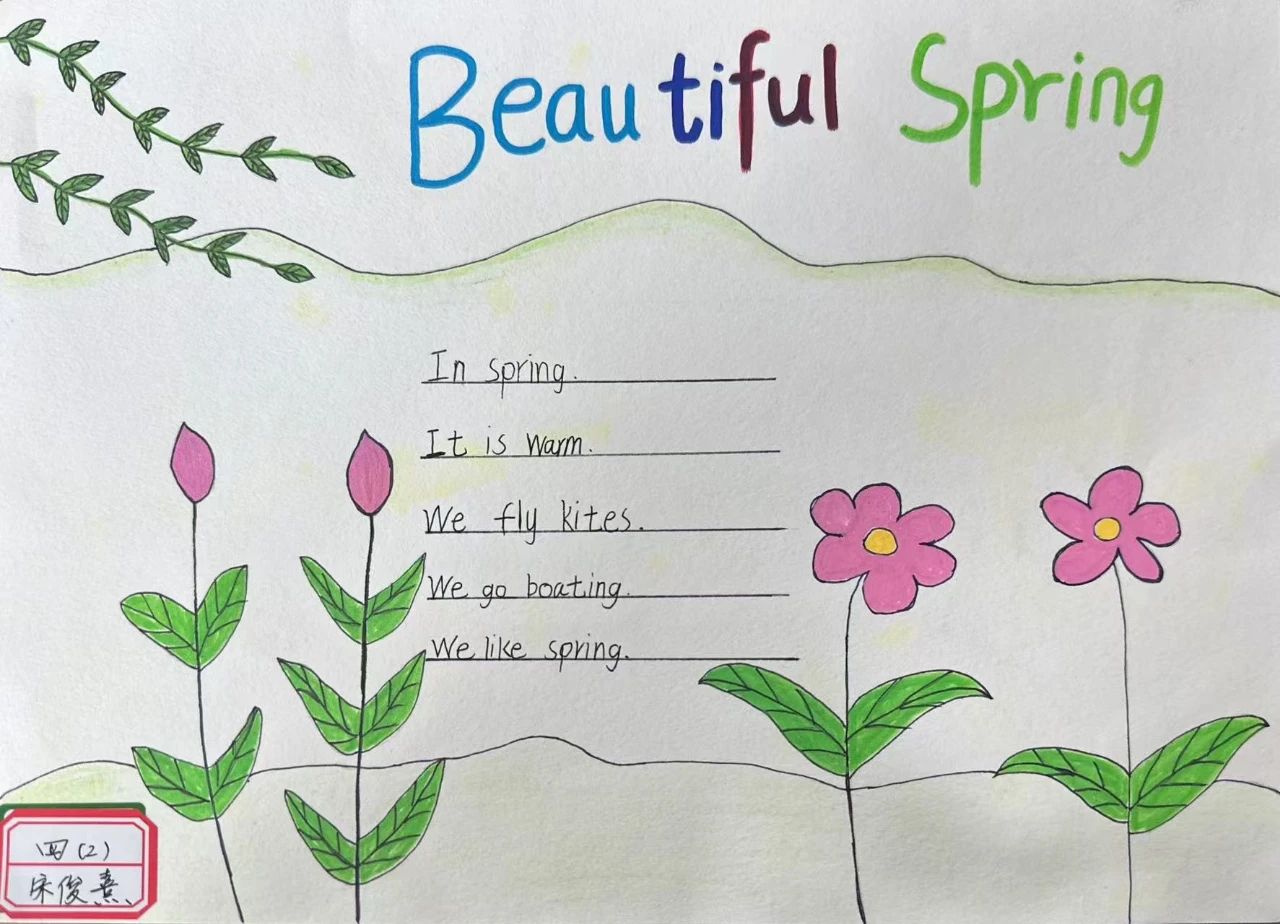 Beautiful Spring
In spring.
It is warm.
We fly kites.
We go boating.
We like spring.
四(2)
宋俊熹